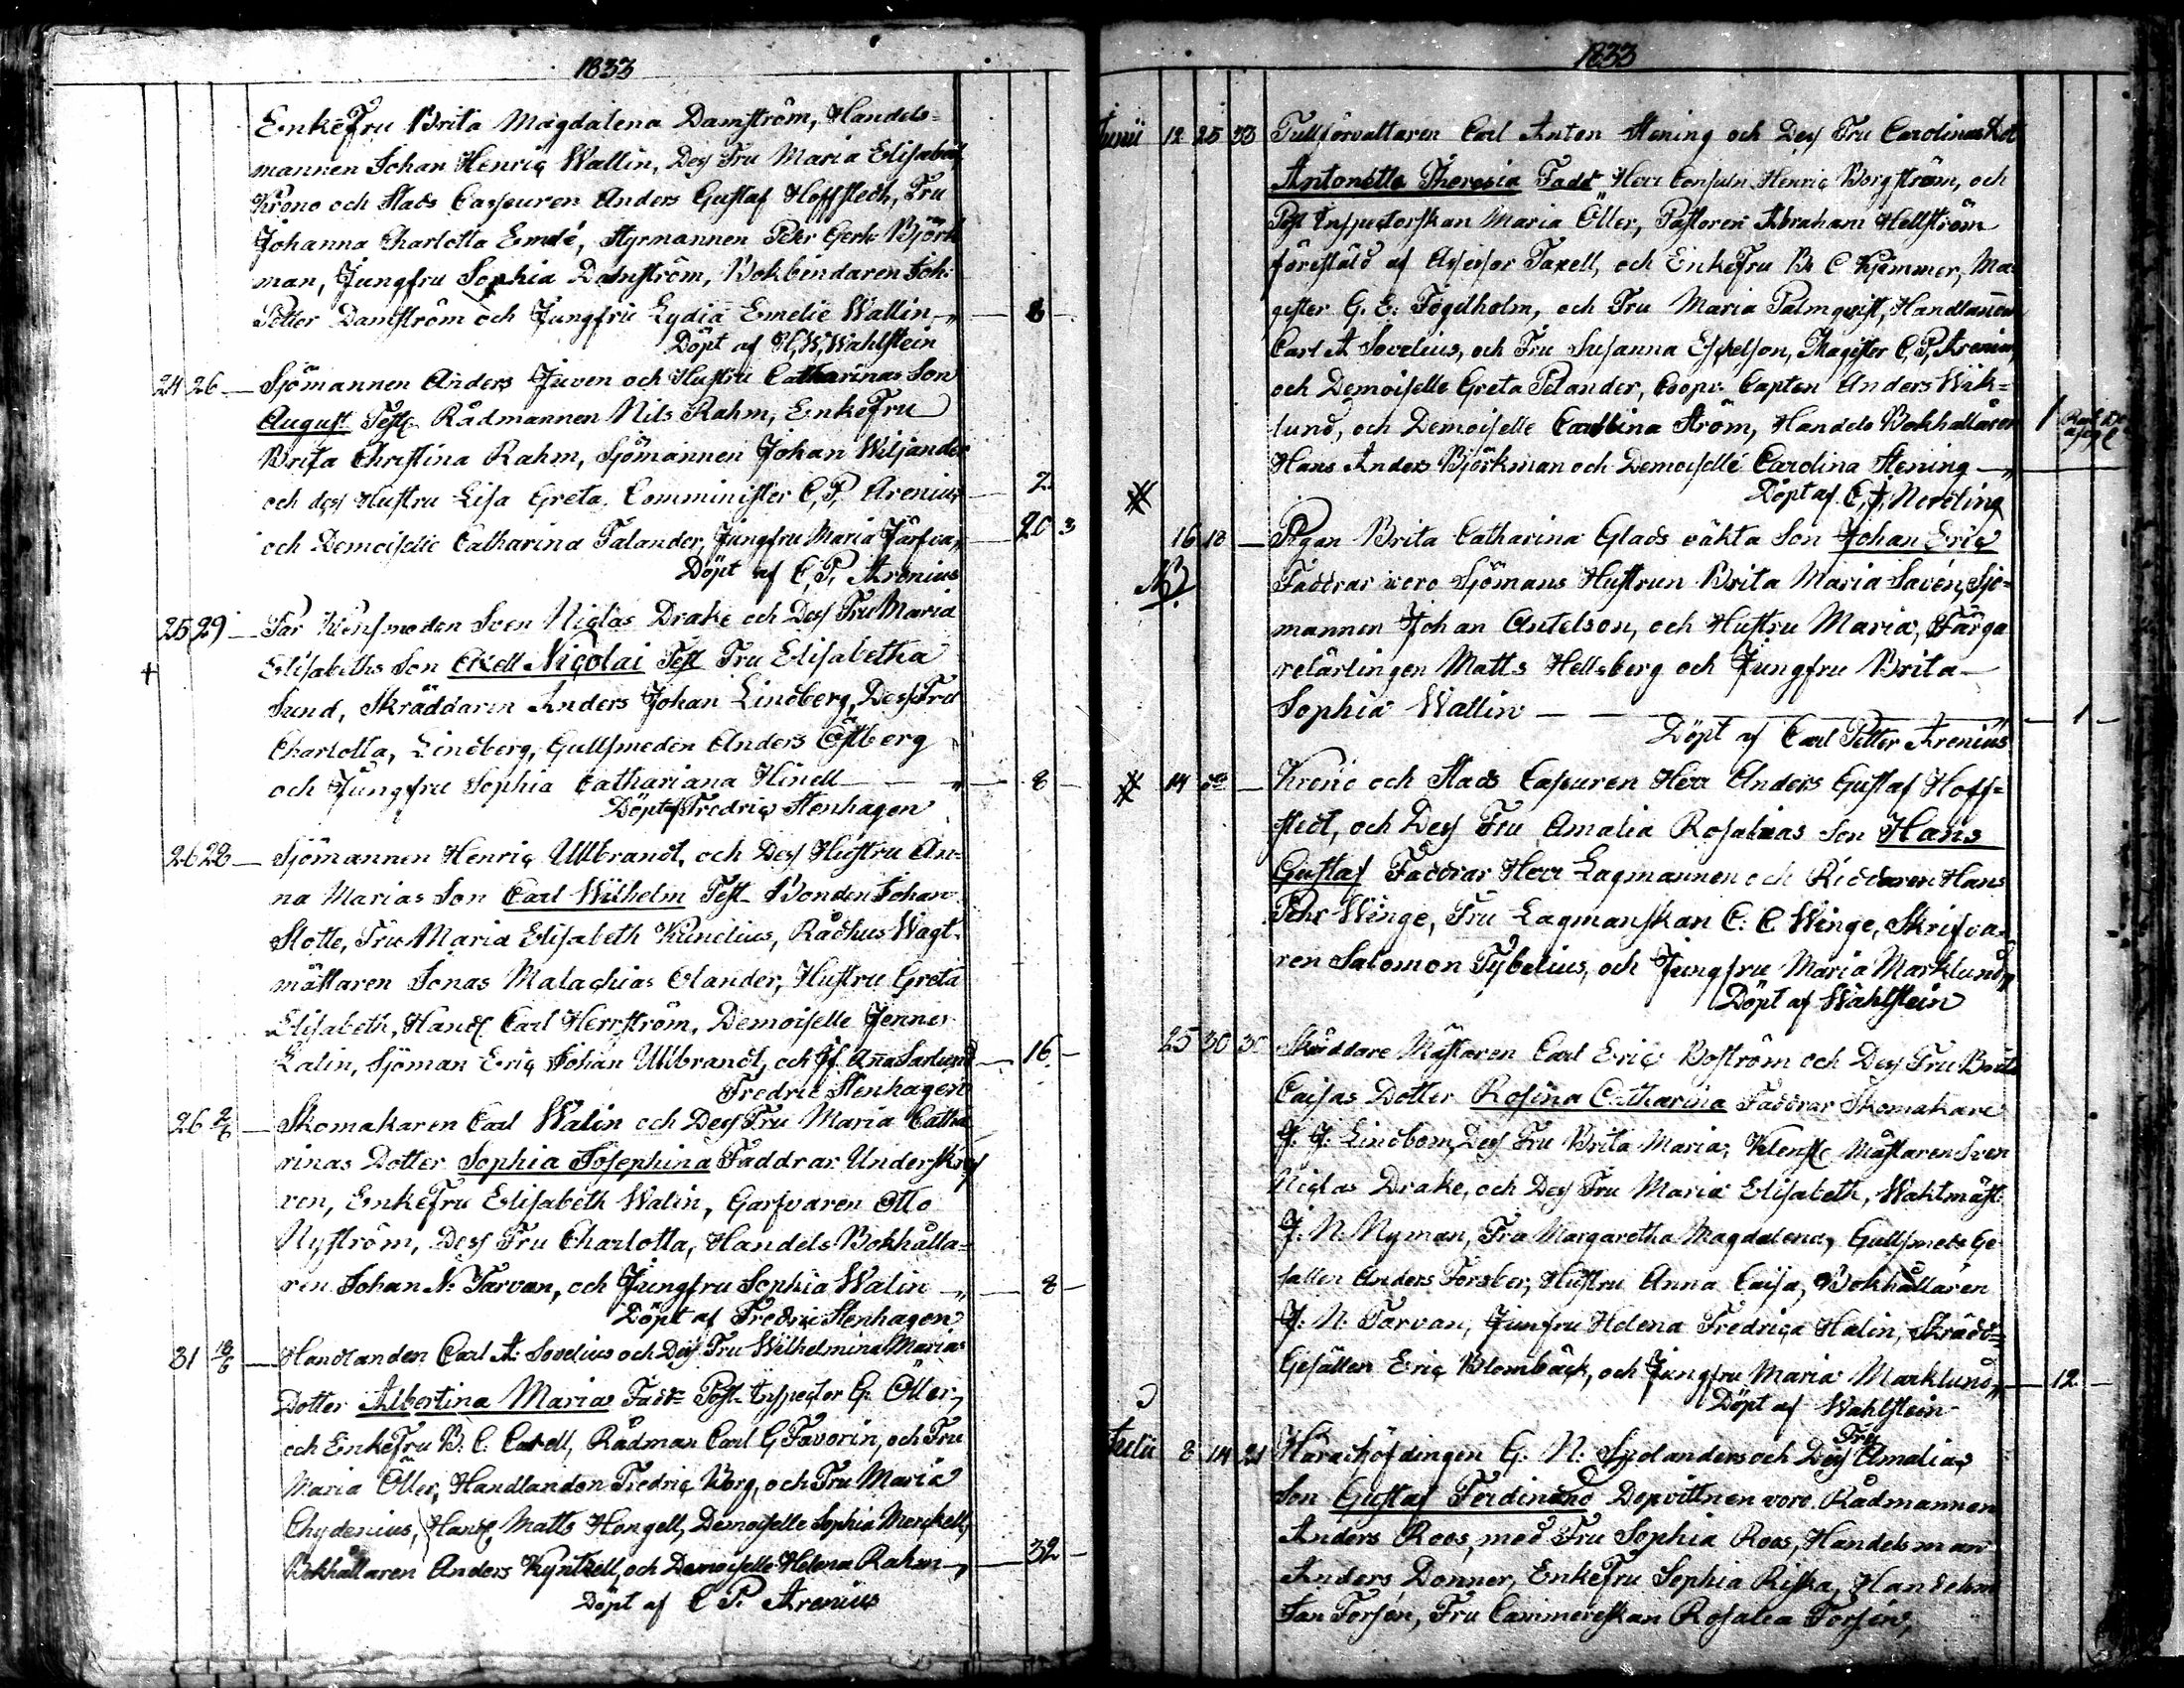 1833
EnkeFru Brita Magdalena Damström, Handels=
mannen Johan Henric Wallin, Dess Fru Maria Elisabeth
Krono och Stads Casseuren Anders Gustaf Hoffstedt, Fru
Johanna Charlotta Emelé, Styrmannen Petter Gerh: Björk
man, Jungfru Sophia Damström, Bokbindaren Joh:
Petter Damström och Jungfru Lydia Emelie Wallin — 8 —
Döpt af H, W, Wahlstein
24 26 — Sjömannen Anders Juven och Hustru Catharinas Son
August Test Rådmannen Nils Rahm, EnkeFru
Brita Christina Rahm, Sjömannen Johan Wiljander
och dess Hustru Lisa Greta, Comminister C, P, Arenius — 2
och Demoiselle Catharina Talander, Jungfru Maria Järfva — 20 3
Döpt af C, P, Arenius
25 29 — Sven Niclas Drake och Dess Fru Maria
Elisabeths Son Axell Nicolai Test Fru Elisabetha
Sund, Skräddaren Anders Johan Lindberg, Dess Fru
Charlotta, Lindberg, Gullsmeden Anders Östberg
och Jungfru Sophia Cathariana Hinell — 8 —
Döpt af Fredric Stenhagen
26 28 — Sjömannen Henric Ullbrandt, och Dess Hustru An=
na Marias Son Carl Wilhelm Test Bonden Johan
Slotte, Fru Maria Elisabeth Kunelius, Rådhus Wagt-
mästaren Jonas Malachias Olander, Hustru Greta
Elisabeth, Handl Carl Herrström, Demoiselle Jennes
Lalin, Sjöman Eric Johan Ullbrandt, och Jf Anna Sarlund — 16 —
Fredric Stenhagen
26 2/6 — Skomakaren Carl Walin och Dess Fru Maria Catha
rinas Dotter Sophia Josephina Faddrar Underskrif
ren, EnkeFru Elisabeth Walin, Garfvaren Otto
Nyström, Dess Fru Charlotta, Handels Bokhålla=
ren Johan N. Tarvan, och Jungfru Sophia Walin — 8 —
Döpt af Fredric Stenhagen
31 — Handlanden Carl A: Sovelius och Dess Fru Wilhelmina Marias
Dotter Albertina Maria Fadd= Post-Inspector G. Öller,
och EnkeFru B. C. Rådman Carl G Favorin, och Fru
Maria Öller, Handlanden Fredric Borg, och Fru Maria
Chydenius, Handl Matts Hongell, Demoiselle Sophia Merckell,
Bokhållaren Anders Kyntzell, och Demoiselle Helena Rahm — 32 —
Döpt af C P. Arenius
1833
Junii 12 25 33 Tullförvaltaren Carl Anton Stening och Dess Fru Carolinas Dot
Antonette Theresia Fadd= Herr Consuln Henric Borgström, och
Post Inspectorskan Maria Öller, Pastoren Abraham Hellström
föreståld af Assessor Taxell, och EnkeFru B. C Kjemmer, Ma
gister G. E. Tögelholm, och Fru Maria Palmqvist, Handlanden
Carl A Sovelius, och Fru Susanna Esckelson, Magister C, P, Arenius
och Demoiselle Greta Pelander, Capten Anders Wik=
lund, och Demoiselle Carolina Ström, Handels Bokhållaren 1
Hans Anders Björkman och Demoiselle Carolina Stening —
Döpt af C, J, Nordling
16 18 — Pigan Brita Catharina Glads oäkta Son Johan Eric
Faddrar woro Sjömans Hustrun Brita Maria Savén, Sjö=
mannen Johan Antelson, och Hustru Maria, Färga
relärlingen Matts Hellsberg och Jungfru Brita
Sophia Wallin — — — 1 —
Döpt af Carl Petter Arenius
14 — Krono och Stads Caseuren Herr Anders Gustaf Hoff=
stedt, och Dess Fru Amalia Rosalinas Son Hans
Gustaf Faddrar Herr Lagmannen och Riddaren Hans
Pehr Winge, Fru Lagmanskan C. C Winge, Skrifva-
ren Salomon Tybelius, och Jungfru Maria Marklund
Döpt af Wahlstein
25 30 Skräddare Mästaren Carl Eric Boström och Dess Fru Brita
Caisas Dotter Rosina Catharina Faddrar Skomakare
J. J. Lindbom, Dess Fru Brita Maria, Klensm Mästaren Sven
Niclas Drake, och Dess Fru Maria Elisabeth, Waktmäst:
J. N. Nyman, Fru Margaretha Magdalena, Gullsmeds Ge
sällen Anders Forsber, Hustru Anna Caisa, Bokhållaren
J. N. Tarvan, Junfru Helena Fredrica Halin, Skrädd=
Gesällen Eric Blombäck, och Jungfru Maria Marklund — 12 —
Döpt af Wahlstein
Julii 8 14 21 Häradshöfdingen G. N. och Dess Fru Amalias
Son Gustaf Ferdinand Dopvittnen voro Rådmannen
Anders Roos, med Fru Sophia Roos, Handelsman
Anders Donner, EnkeFru Sophia Riska, Handelsm
Jan Forsén, Fru Cammereskan Rosalia Forsén,